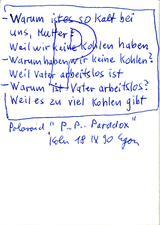 - Warum ist es so kalt bei
uns, Mutter?
Weil wir keine Kohlen haben
- Warum haben wir keine Kohlen?
Weil Vater arbeitslos ist
- Warum ist Vater arbeitslos?
Weil es zu viel Kohlen gibt
Polaroid " P.. P.. Paradox "
Köln 18 IX 90